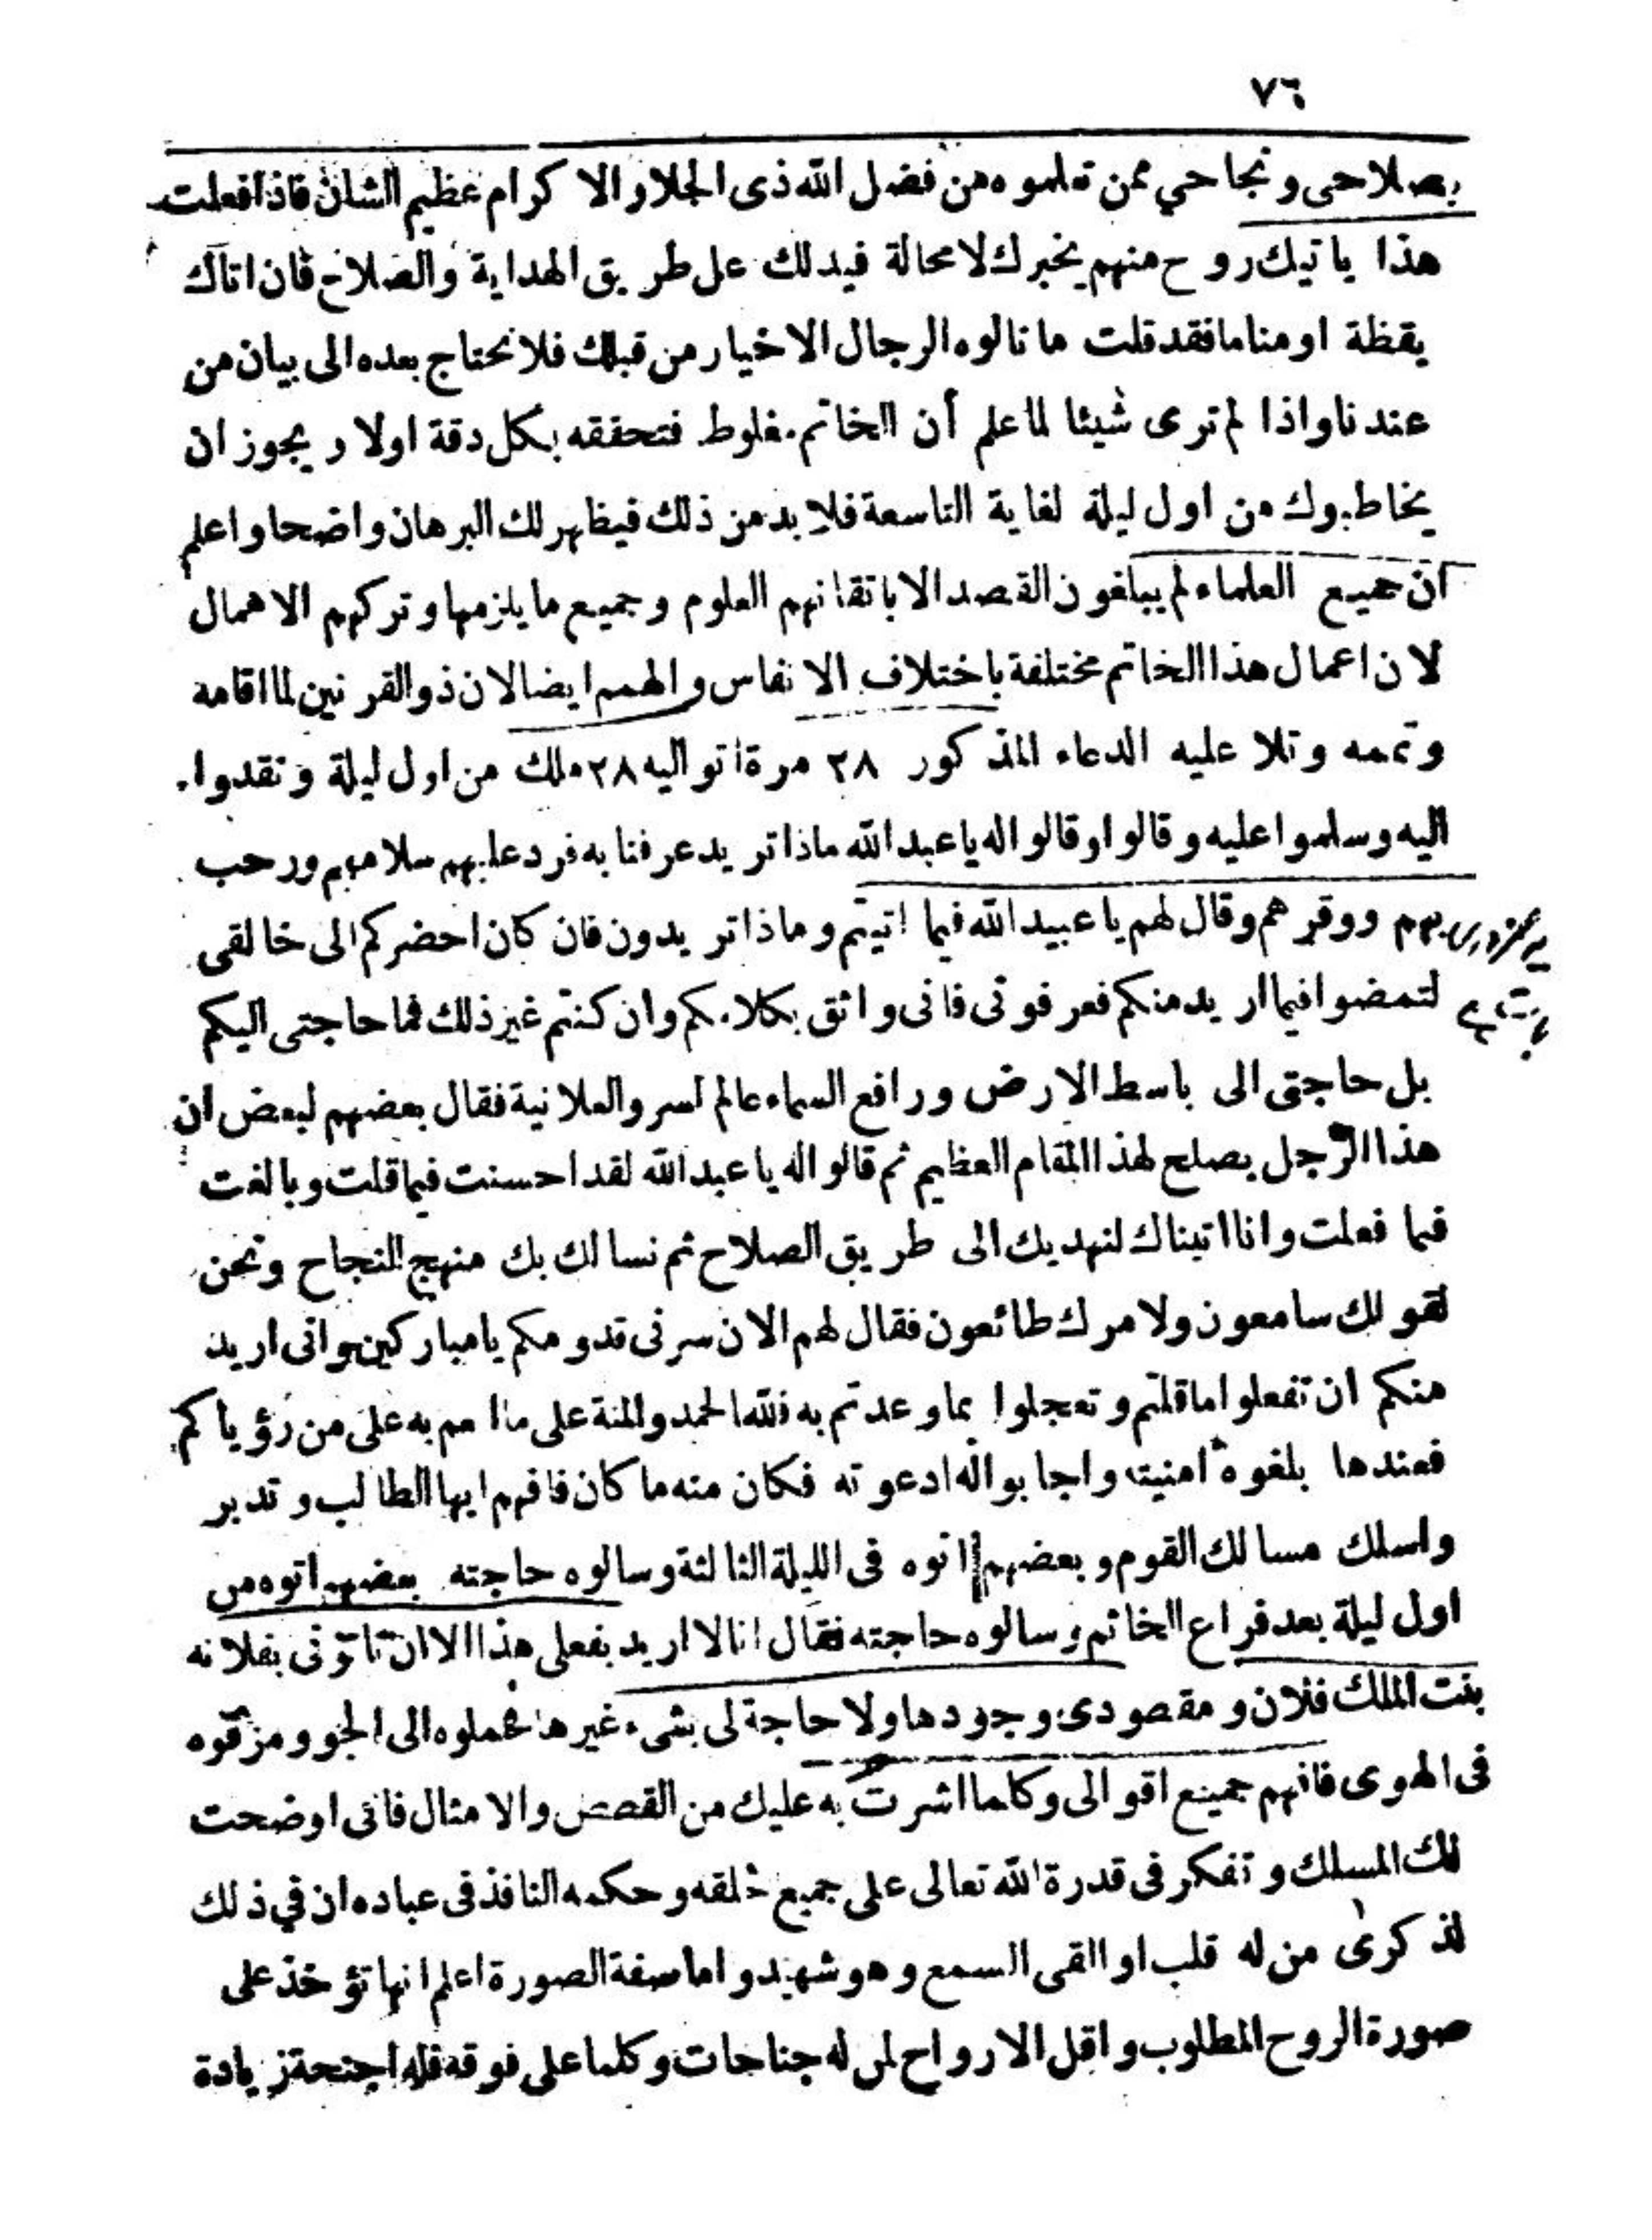 ٧٦
بصلاحى ونجاحي ممن تعلموه من فضل الله ذى الجلا والاكرام عظيم الشان فاذا فعلت
هذا ياتيك روح منهم يخبرك لا محالة فيدلك على طريق الهداية والصلاح فان اتاك
يقظة او مناما فقد قلت ما نالوه الرجال الاخيار من قبلك فلا نحتاج بعده الى بيان من
عندنا واذا لم ترى شيئا لماعلم أن الخاتم مغلوط فتحققه بكل دقة اولا ويجوز ان
يخاطبوك من اول ليلة لغاية التاسعة فلا بد من ذلك فيظهر لك البرهان واضحا واعلم
ان جميع العلماء لم يبلغون القصد الا باتقانهم العلوم وجميع ما يلزمها وتركهم الاهمال
لان اعمال هذا الخاتم مختلفة باختلاف الانفاس والهمم ايضا لان ذو القرنين لما اقامه
وتممه وتلا عليه الدعاء المذكور ٢٨ مرة اتو اليه ٢٨ ملك من اول ليلة وتقدوا
اليه وسلموا عليه وقالوا وقالوا له يا عبد الله ماذا تريد عرفنا به فرد عليهم سلامهم ورحب
بهم ووقرهم وقال لهم يا عبيد الله فيما اتيتم وماذا تريدون فان كان احضركم الى خالقى
لتمضوا فيما اريد منكم فعرفونى فانى واثق بكلامكم وان كنتم غير ذلك فما حاجتى اليكم
بل حاجتى الى باسط الارض ورافع السماء عالم لسر والعلانية فقال بعضهم لبعض ان
هذا الرجل يصلح لهذا المقام العظيم ثم قالوا له يا عبد الله لقد احسنت فيما قلت وبالغت
فيما فعلت وانا اتيناك لنهديك الى طريق الصلاح ثم نسالك بك منهج النجاح ونحن
لقولك سامعون ولامرك طائعون فقال لهم الان سرنى قدومكم يا مباركين وانى اريد
منكم ان تفعلوا ما قلتم وتعجلوا بما وعدتم به فلله الحمد والمنة على ما به على من رؤياكم
فعندها بلغوه امنيته واجابوا له ادعوته فكان منه ما كان فافهم ايها الطالب وتدبر
واسلك مسالك القوم وبعضهم اتوه فى الليلة الثالثة وسالوه حاجته بعضهم اتوه من
اول ليلة بعد فراع الخاتم وسالوه حاجته فقال انا لا اريد بفعلى هذا الا ان تاتونى بفلانه
بنت الملك فلان ومقصودى وجودها ولا حاجة لى بشىء غيرها فحملوه الى الجو ومزقوه
فى الهوى فافهم جميع اقوالى وكلما اشرت به عليك من القصص والامثال فانى اوضحت
لك المسلك وتفكر فى قدرة الله تعالى على جميع خلقه وحكمه النافذ فى عباده ان في ذلك
لذكرى من له قلب او القى السمع وهو شهيد واما صفة الصورة اعلم انها تؤخذ على
صورة الروح المطلوب واقل الارواح لمن له جناحات وكلما على فوقه فله اجنحة زيادة